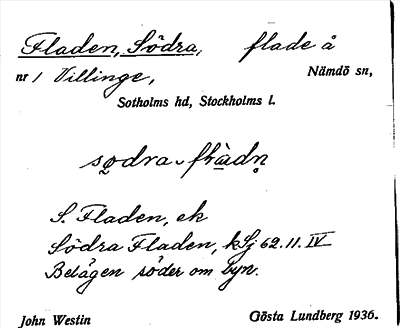 Fladen, Södra, flade å
nr 1 Villinge, Nämdö sn,
Sotholms hd, Stockholms l.
S. Fladen, ek
Södra Fladen, kSj 62.11.IV
Belägen söder om byn.
John Westin Gösta Lundberg 1936.